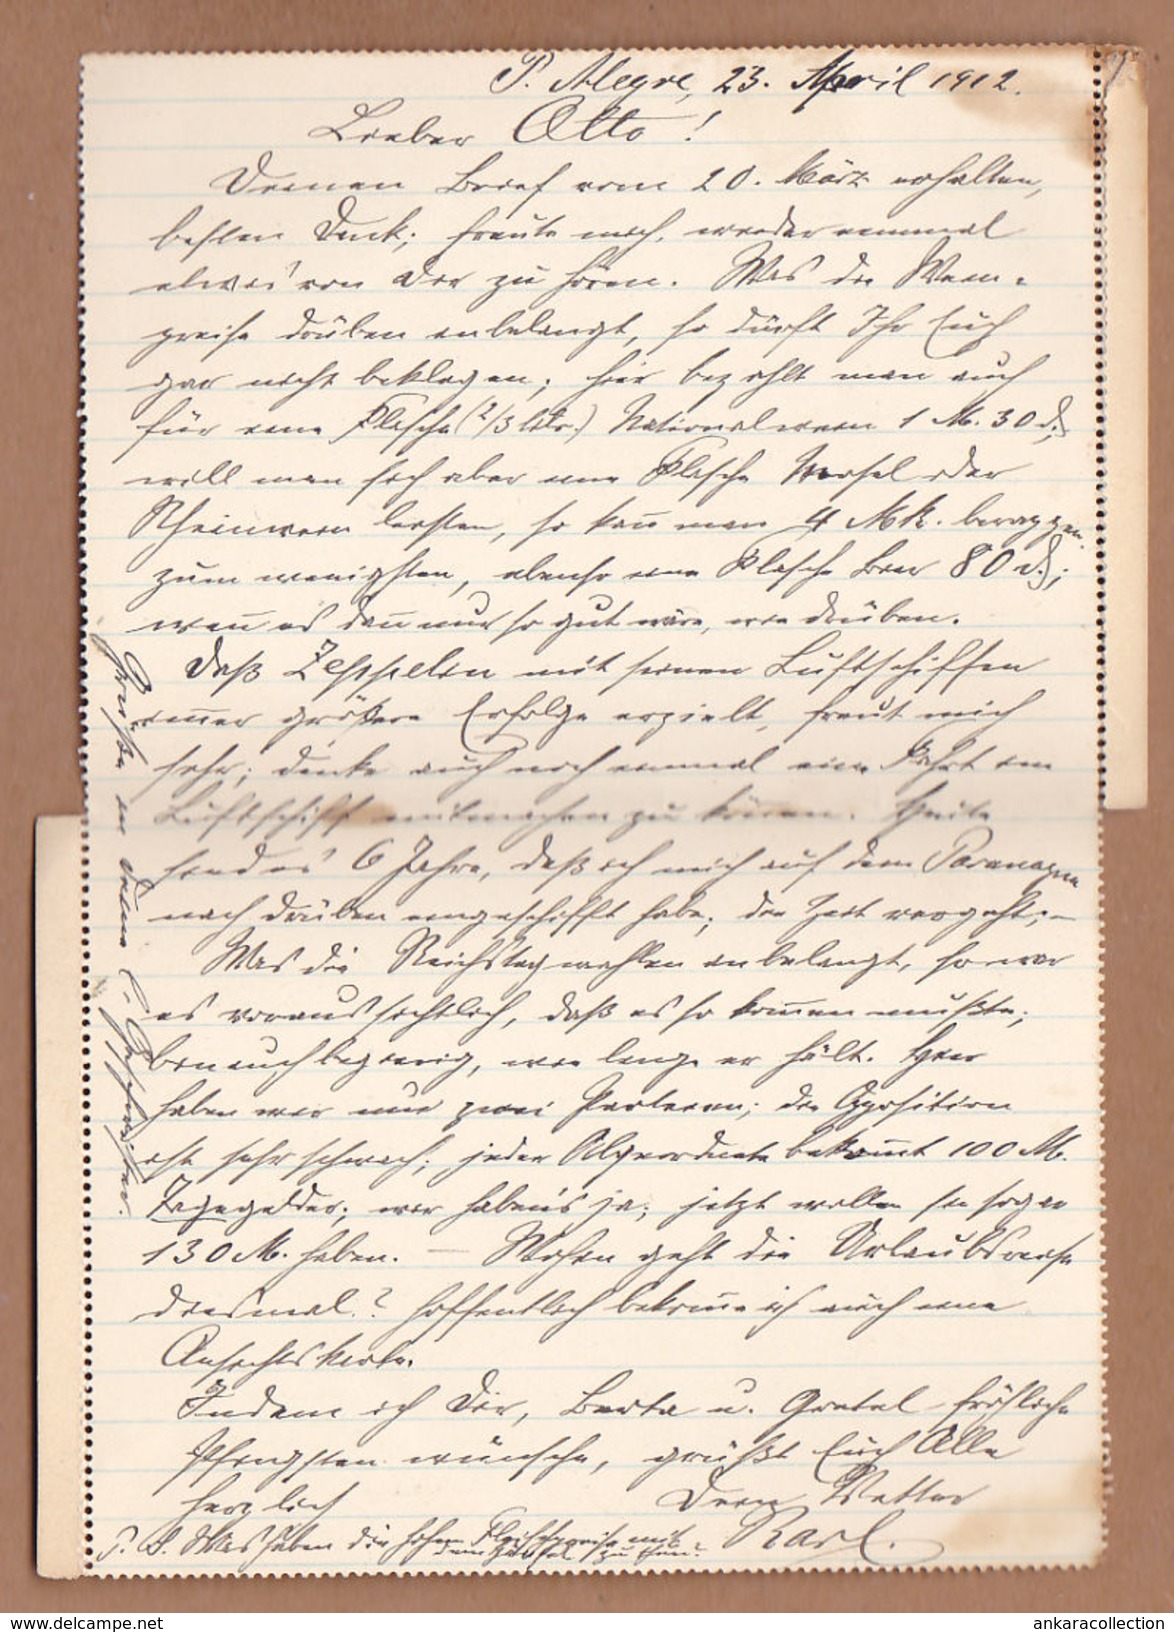 P. Alegre, 23. April 1912.
Lieber Otto!
Deinen Brief vom 20. März erhalten,
besten Dank; freute mich, wieder einmal
etwas von Dir zu hören. Was die Wein-
preise drüben anbelangt, so dürft Ihr Euch
gar nicht beklagen; hier bezahlt man auch
für eine Flasche (2/3 Ltr.) Nationalwein 1 M. 30 d;
will man sich aber eine Flasche Mosel oder
Rheinwein leisten, so kan̄ man 4 Mk. berappen
zum wenigsten, ebenso eine Flasche Bier 80 d;
wen̄ es dan̄ nur so gut wäre, wie drüben.
Daß Zeppelin mit seinen Luftschiffen
im̄er größere Erfolge erzielt, freut mich
sehr; denke auch noch einmal eine Fahrt im
Luftschiff mitmachen zu kön̄en. Heute
sind es 6 Jahre, daß ich mich auf dem Paranagua
nach drüben eingeschifft habe; die Zeit vergeht;—
Was die Reichstagwahlen anbelangt, so war
es voraussichtlich, daß es so kom̄en mußte;
bin auch begierig, wie lange er hält. Hier
haben wir nur zwei Parteien; die Opposition
ist sehr schwach; jeder Abgeordnete bekom̄t 100 M.
Tagegelder; wir haben's ja; jetzt wollen sie sogar
130 M. haben. — Wohin geht die Urlaubsreise
diesmal? hoffentlich bekom̄e ich auch eine
Ansichtskarte.
Indem ich Dir, Berta u. Gretel fröhliche
Pfingsten wünsche, grüßt Euch Alle
herzlich Dein Vetter
Karl.
P. S. Was haben die hohen Fleischpreise mit
dem zu thun?
Grüße an Deine l. Geschwister.
www.delcampe.net
ankaracollection